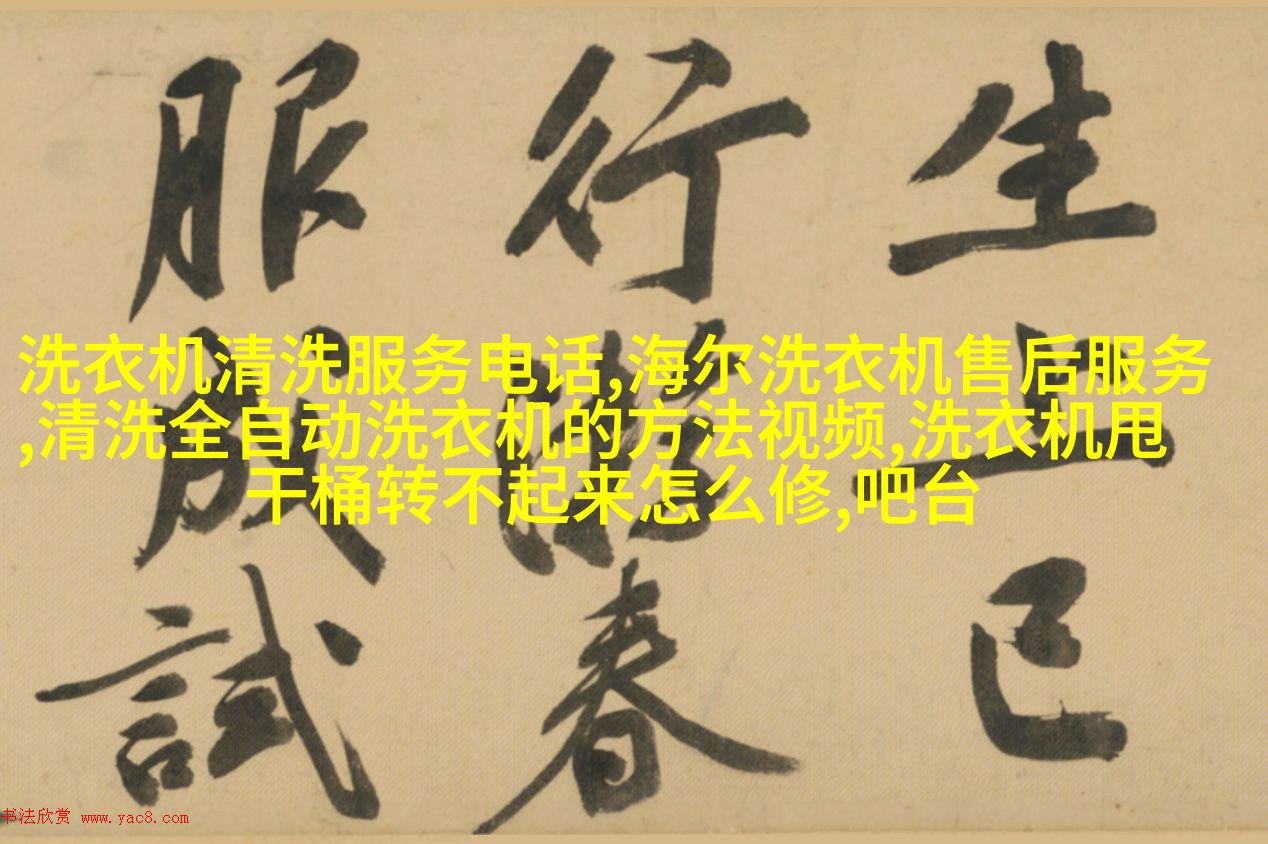 生上巳
行春
服成試
洗衣机清洗服务电话,海尔洗衣机售后服务
,清洗全自动洗衣机的方法视频,洗衣机甩
干桶转不起来怎么修,吧台
书法欣赏 www.yac8.com